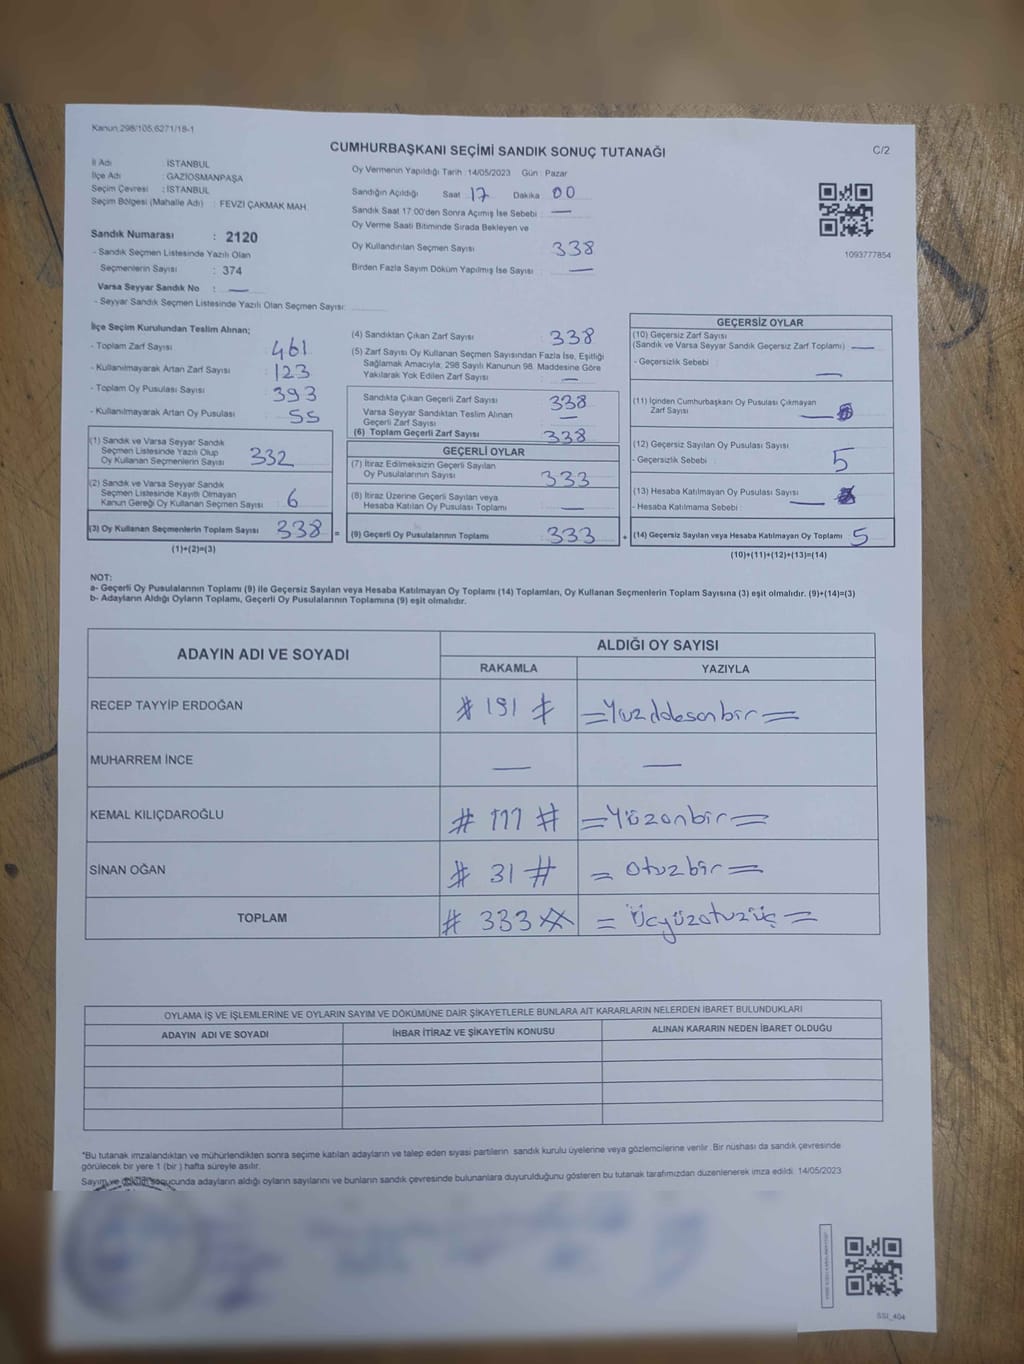 Kanun 298/105,6271/18-1
CUMHURBAŞKANI SEÇİMİ SANDIK SONUÇ TUTANAĞI
C/2
İl Adı : İSTANBUL
İlçe Adı : GAZİOSMANPAŞA
Seçim Çevresi : İSTANBUL
Seçim Bölgesi (Mahalle Adı) : FEVZİ ÇAKMAK MAH.
Sandık Numarası : 2120
- Sandık Seçmen Listesinde Yazılı Olan
Seçmenlerin Sayısı : 374
Varsa Seyyar Sandık No : —
- Seyyar Sandık Seçmen Listesinde Yazılı Olan Seçmen Sayısı:
Oy Vermenin Yapıldığı Tarih :14/05/2023 Gün : Pazar
Sandığın Açıldığı Saat : 17 Dakika : 00
Sandık Saat 17:00'den Sonra Açımış İse Sebebi : —
Oy Verme Saati Bitiminde Sırada Bekleyen ve
Oy Kullandırılan Seçmen Sayısı 338
Birden Fazla Sayım Döküm Yapılmış İse Sayısı : —
1093777854
İlçe Seçim Kurulundan Teslim Alınan;
- Toplam Zarf Sayısı : 461
- Kullanılmayarak Artan Zarf Sayısı : 123
- Toplam Oy Pusulası Sayısı : 393
- Kullanılmayarak Artan Oy Pusulası : 55
(1) Sandık ve Varsa Seyyar Sandık
Seçmen Listesinde Yazılı Olup
Oy Kullanan Seçmenlerin Sayısı 332
(2) Sandık ve Varsa Seyyar Sandık
Seçmen Listesinde Kayıtlı Olmayan
Kanun Gereği Oy Kullanan Seçmen Sayısı : 6
(3) Oy Kullanan Seçmenlerin Toplam Sayısı 338 =
(1)+(2)=(3)
(4) Sandıktan Çıkan Zarf Sayısı : 338
(5) Zarf Sayısı Oy Kullanan Seçmen Sayısından Fazla İse, Eşitliği
Sağlamak Amacıyla; 298 Sayılı Kanunun 98. Maddesine Göre
Yakılarak Yok Edilen Zarf Sayısı : —
Sandıkta Çıkan Geçerli Zarf Sayısı : 338
Varsa Seyyar Sandıktan Teslim Alınan
Geçerli Zarf Sayısı : —
(6) Toplam Geçerli Zarf Sayısı : 338
GEÇERLİ OYLAR
(7) İtiraz Edilmeksizin Geçerli Sayılan
Oy Pusulalarının Sayısı : 333
(8) İtiraz Üzerine Geçerli Sayılan veya
Hesaba Katılan Oy Pusulası Toplamı : —
(9) Geçerli Oy Pusulalarının Toplamı : 333 +
GEÇERSİZ OYLAR
(10) Geçersiz Zarf Sayısı
(Sandık ve Varsa Seyyar Sandık Geçersiz Zarf Toplamı) —
- Geçersizlik Sebebi : —
(11) İçinden Cumhurbaşkanı Oy Pusulası Çıkmayan
Zarf Sayısı : —
(12) Geçersiz Sayılan Oy Pusulası Sayısı :
- Geçersizlik Sebebi : 5
(13) Hesaba Katılmayan Oy Pusulası Sayısı : —
- Hesaba Katılmama Sebebi :
(14) Geçersiz Sayılan veya Hesaba Katılmayan Oy Toplamı : 5
(10)+(11)+(12)+(13)=(14)
NOT:
a- Geçerli Oy Pusulalarının Toplamı (9) ile Geçersiz Sayılan veya Hesaba Katılmayan Oy Toplamı (14) Toplamları, Oy Kullanan Seçmenlerin Toplam Sayısına (3) eşit olmalıdır. (9)+(14)=(3)
b- Adayların Aldığı Oyların Toplamı, Geçerli Oy Pusulalarının Toplamına (9) eşit olmalıdır.
ADAYIN ADI VE SOYADI
ALDIĞI OY SAYISI
RAKAMLA YAZIYLA
RECEP TAYYİP ERDOĞAN # 191 # =Yüzdoksanbir=
MUHARREM İNCE — —
KEMAL KILIÇDAROĞLU # 111 # =Yüzonbir=
SİNAN OĞAN # 31 # = Otuzbir =
TOPLAM # 333 # = Üçyüzotuzüç =
OYLAMA İŞ VE İŞLEMLERİNE VE OYLARIN SAYIM VE DÖKÜMÜNE DAİR ŞİKAYETLERLE BUNLARA AİT KARARLARIN NELERDEN İBARET BULUNDUKLARI
ADAYIN ADI VE SOYADI İHBAR İTİRAZ VE ŞİKAYETİN KONUSU ALINAN KARARIN NEDEN İBARET OLDUĞU
*Bu tutanak imzalandıktan ve mühürlendikten sonra seçime katılan adayların ve talep eden siyasi partilerin sandık kurulu üyelerine veya gözlemcilerine verilir. Bir nüshası da sandık çevresinde
görülecek bir yere 1 (bir ) hafta süreyle asılır.
Sayım ve döküm sonucunda adayların aldığı oyların sayılarını ve bunların sandık çevresinde bulunanlara duyurulduğunu gösteren bu tutanak tarafımızdan düzenlenerek imza edildi. 14/05/2023
SSI_404